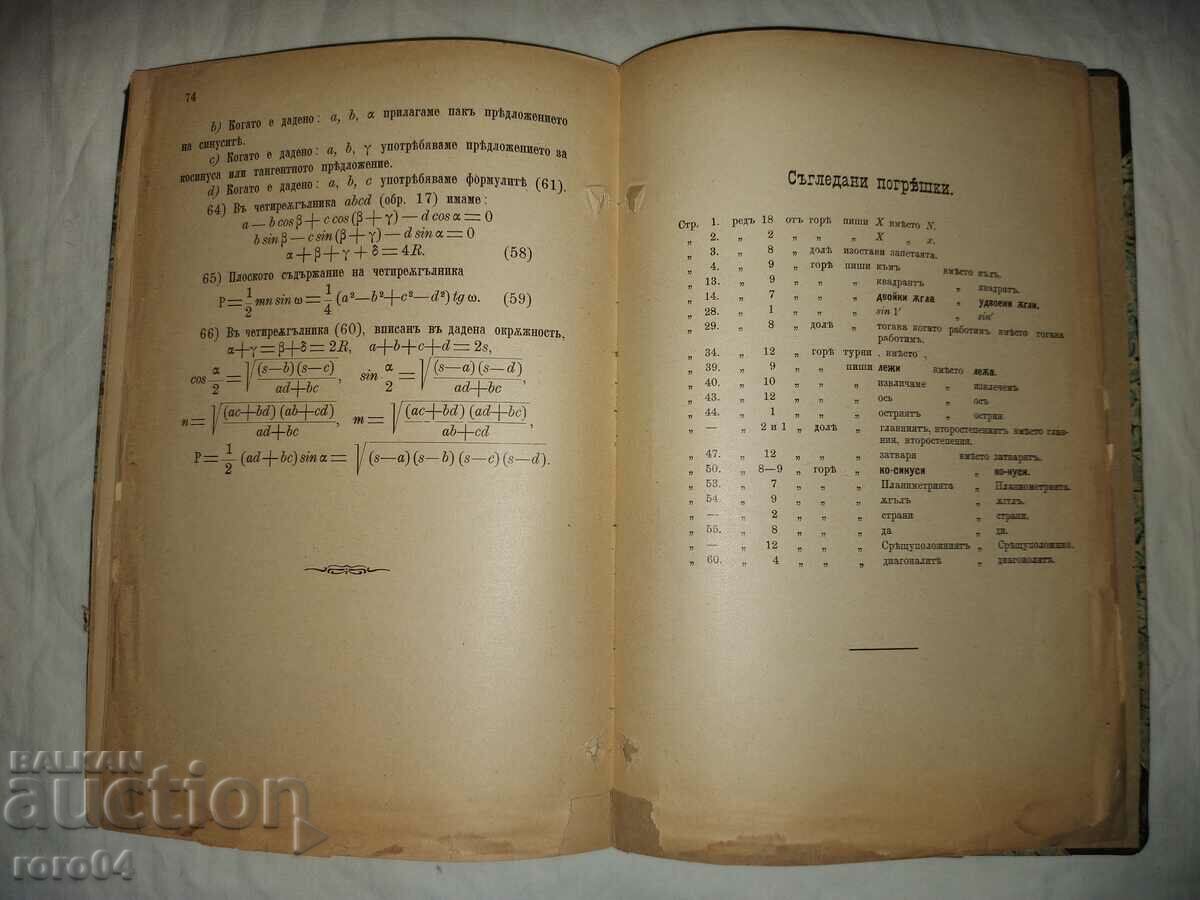 74
b) Когато е дадено: a, b, α прилагаме пакъ прѣдложението
на синуситѣ.
c) Когато е дадено: a, b, γ употрѣбяваме прѣдложението за
косинуса или тангентното прѣдложение.
d) Когато е дадено: a, b, c употрѣбяваме формулитѣ (61).
64) Въ четиреѫгълника abcd (обр. 17) имаме:
a — b cos β + c cos (β + γ) — d cos α = 0
b sin β — c sin (β + γ) — d sin α = 0
α + β + γ + δ = 4R. (58)
65) Плоското съдържание на четиреѫгълника
P = 1/2 mn sin ω = 1/4 (a² — b² + c² — d²) tg ω. (59)
66) Въ четиреѫгълника (60), вписан въ дадена окрѫжность,
α + γ = β + δ = 2R, a + b + c + d = 2s,
cos α/2 = √((s—b)(s—c)/(ad+bc)), sin α/2 = √((s—a)(s—d)/(ad+bc))
n = √((ac+bd)(ab+cd)/(ad+bc)), m = √((ac+bd)(ad+bc)/(ab+cd)),
P = 1/2 (ad+bc) sin α = √((s—a)(s—b)(s—c)(s—d)).
Съгледани погрѣшки.
Стр. 1. редъ 18 отъ горѣ пиши X вмѣсто N.
„ 2. „ 2 „ „ „ X „ x.
„ 3. „ 8 „ долѣ изостави запетаята.
„ 4. „ 9 „ горѣ пиши къмъ вмѣсто къгъ.
„ 13. „ 9 „ „ „ квадрантъ „ квадратъ.
„ 14. „ 7 „ „ „ двойки ѫгла „ удвоени ѫгли.
„ 28. „ 1 „ „ „ sin 1′ „ sin′
„ 29. „ 8 „ долѣ „ тогава когато работимъ вмѣсто тогава
работимъ.
„ 34. „ 12 „ горѣ турни . вмѣсто ,
„ 39. „ 9 „ „ пиши лежи вмѣсто лежа.
„ 40. „ 10 „ „ „ извличаме „ извлечемъ
„ 43. „ 12 „ „ „ ось „ осъ
„ 44. „ 1 „ „ „ остриятъ „ острия.
„ — „ 2 и 1 „ долѣ „ главниятъ, второстепениятъ вмѣсто глав-
ния, второстепения.
„ 47. „ 12 „ „ „ затваря вмѣсто затварятъ.
„ 50. „ 8—9 „ горѣ „ ко-синуси „ ко-нуси.
„ 53. „ 7 „ „ „ Планиметрията „ Планнометрията.
„ 54. „ 9 „ „ „ ѫгълъ „ ѫгтлъ.
„ — „ 2 „ „ „ страни „ страни.
„ 55. „ 8 „ „ „ да „ ди.
„ — „ 12 „ „ „ Срѣщуположниятъ „ Срѣщуположние.
„ 60. „ 4 „ „ „ диагоналитѣ „ диагоналятъ.
BALKAN
auction
roro04